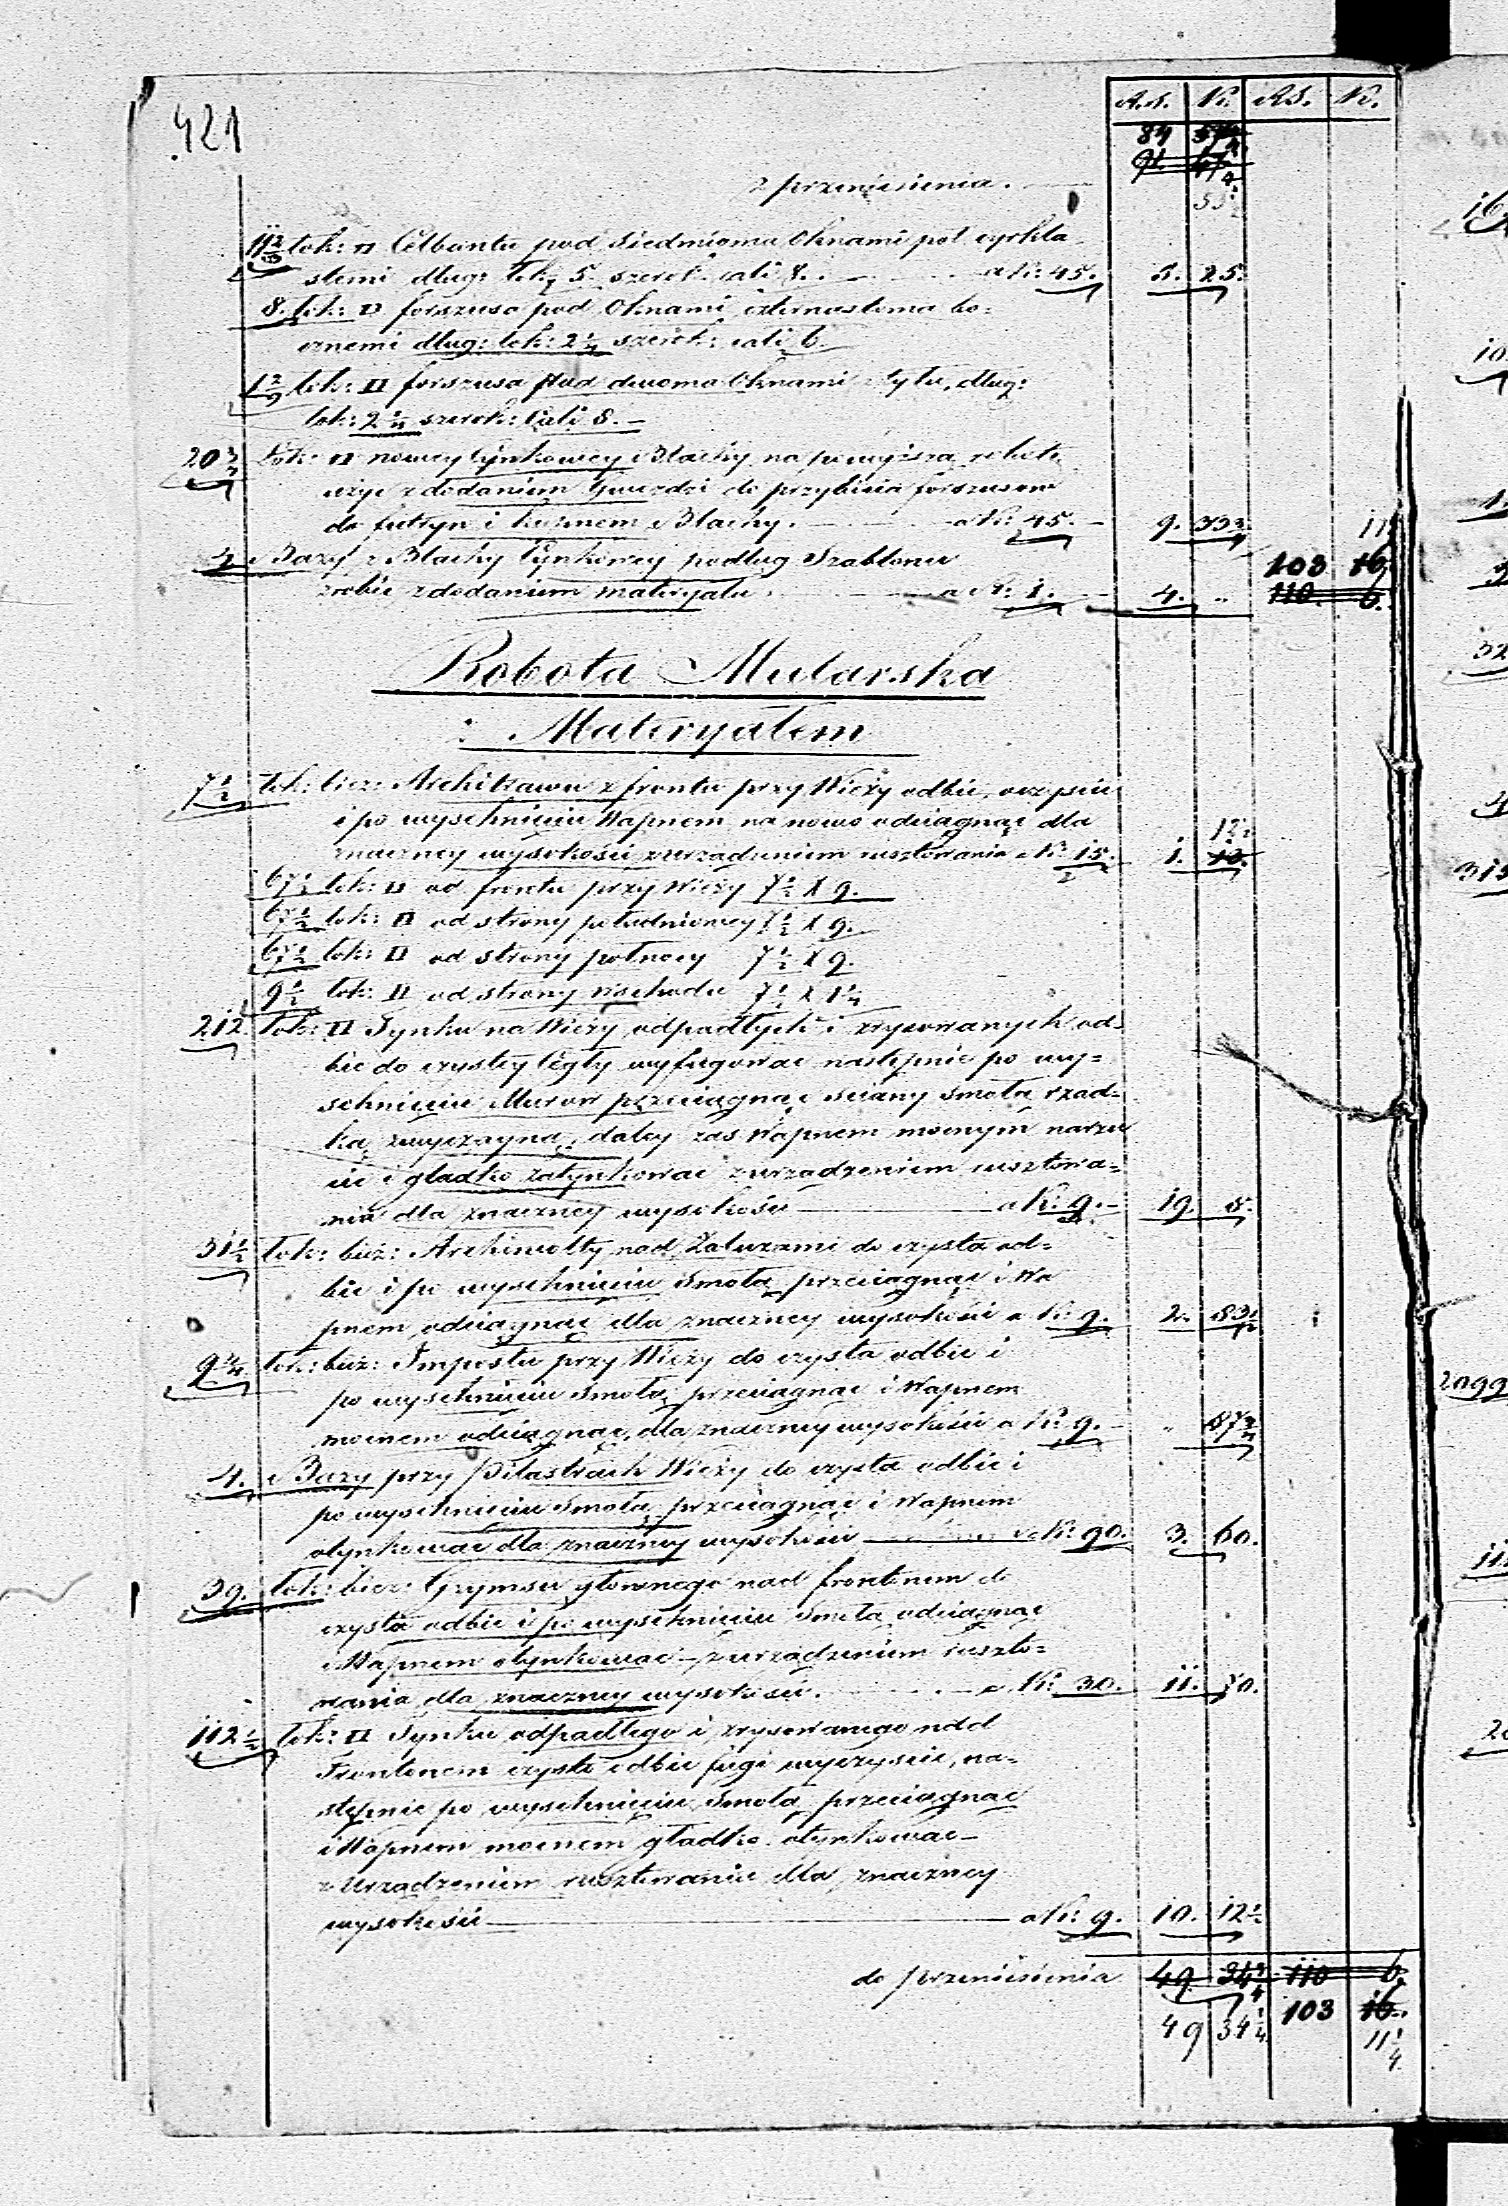 421
R.S. K. RS. K.
84
91
z przeniesienia.
11 2/3 łok: □ Celbantu pod siedmioma Oknami pół cyrkla-
stemi dług: łok: 5. szerok. cali 8. a K: 45. 5. 25.
8. łok: □ forszusa pod Oknami czternastoma bo=
cznemi dług: łok: 2 1/4 szerok: cali 6.
1 2/9 łok: □ forszusa nad dwoma Oknami z tyłu, dług:
łok: 2 1/4 szerok: Cali 8.
20 łok: □ nowey Cynkowey Blachy na powyższą robotę
użyć z dodaniem Gwozdzi do przybicia forszusow
do futryn i Blachy. a K: 45. 9. 33 11
4. Bazy z Blachy Cynkowey podług Szablonu 103 16
zrobić z dodaniem materyału a R: 1. 4. " 110. 6.
Robota Mularska
z Materyałem
7 1/2 łok: bież: Architrawu z frontu przy Wieży odbić, oczyścić
i po wyschnięciu Wapnem na nowo odciągnąć dla 12
znaczney wysokości z urządzeniem rusztowania a K: 15. 1. 13.
67 1/2 łok: □ od frontu przy Wieży 7 1/2 X 9.
67 1/2 łok: □ od strony południowey 7 1/2 X 9.
67 1/2 łok: □ od strony połnocy 7 1/2 X 9.
9 1/2 łok: □ od strony wschodu 7 1/2 X 1 1/4
212. łok: □ Tynku na Wieży odpadłych i zrysowanych od-
bić do czystey Cegły wyfugować następnie po wy=
schnięciu Murow przeciągnąć sciany Smołą rzad-
ką zwyczayną, daley zas Wapnem mocnym narzu
cić i gładko zatynkować z urządzeniem rusztowa=
nia dla znaczney wysokości a K: 9. 19. 8.
31 1/2 łok: bież: Archiwolty nad Zaluzami do czysta od=
bić i po wyschnięciu Smołą przeciągnąć i Wa
pnem odciągnąć dla znaczney wysokości a K: 9. 2. 83 1/2
9 3/4 łok: bież: Impostu przy Wieży do czysta odbić i
po wyschnięciu Smołą przeciągnąć i Wapnem
mocnem odciągnąć, dla znaczney wysokości a K: 9. " 87 3/4
4. Bazy przy Pilastrach Wieży do czysta odbić i
po wyschnięciu Smołą przeciągnąć i Wapnem
otynkować dla znaczney wysokości a K: 90. 3. 60.
39. łok: bież: Gzymsu głownego nad frontonem do
czysta odbić i po wyschnięciu Smołą odciągnąć
i Wapnem otynkować z urządzeniem ruszto=
wania dla znaczney wysokości. a K: 30. 11. 70.
112 1/2 łok: □ Tynku odpadłego i zrysowanego nad
Frontonem czysto odbić fugi wyczyścić, na=
stępnie po wyschnięciu Smołą przeciągnąć
i Wapnem mocnem gładko otynkować
z Urządzeniem rusztowania dla znaczney
wysokości a K: 9. 10. 12 1/2
do przeniesienia 49 34 3/4 110 6.
49 34 1/4 103 16.
11 1/4